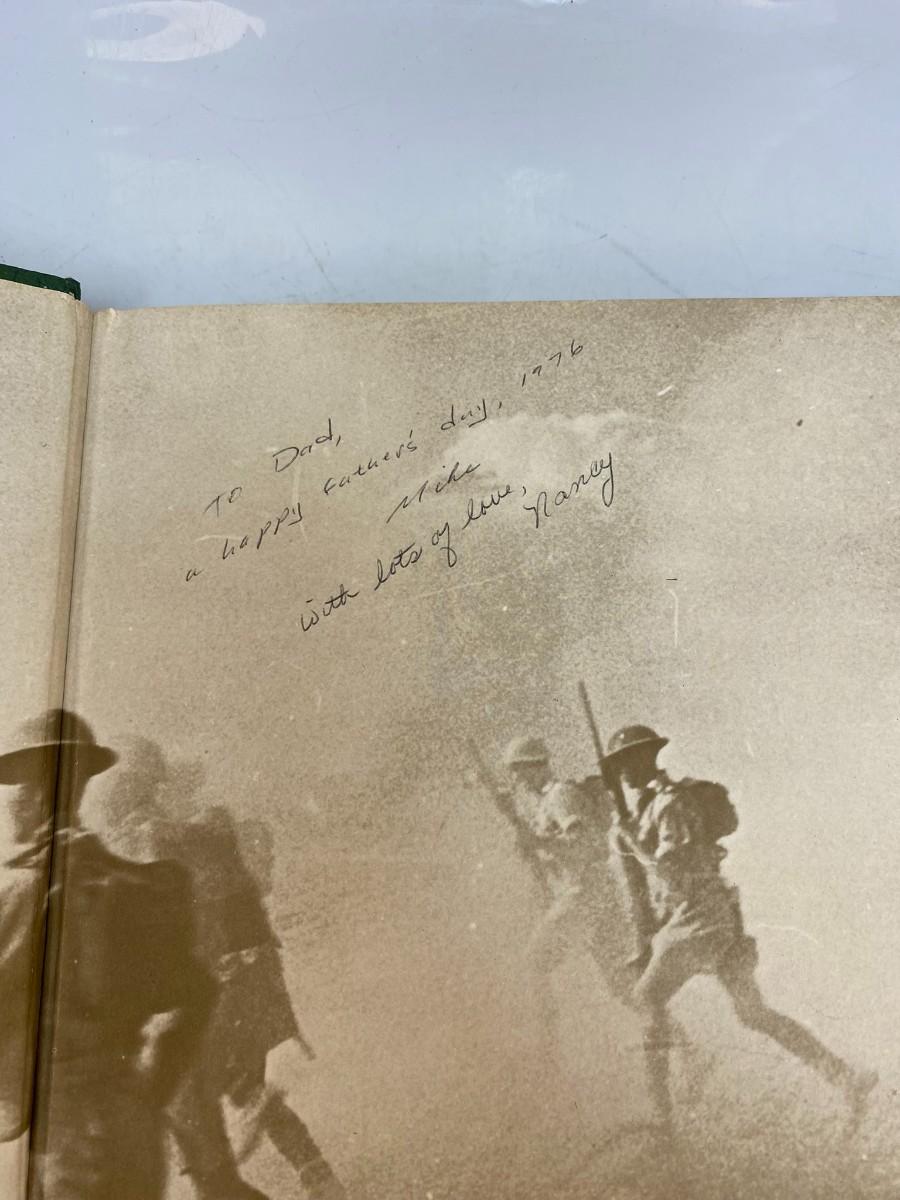 To Dad,
a happy Father's day, 1976
Mike
with lots of love,
Nancy